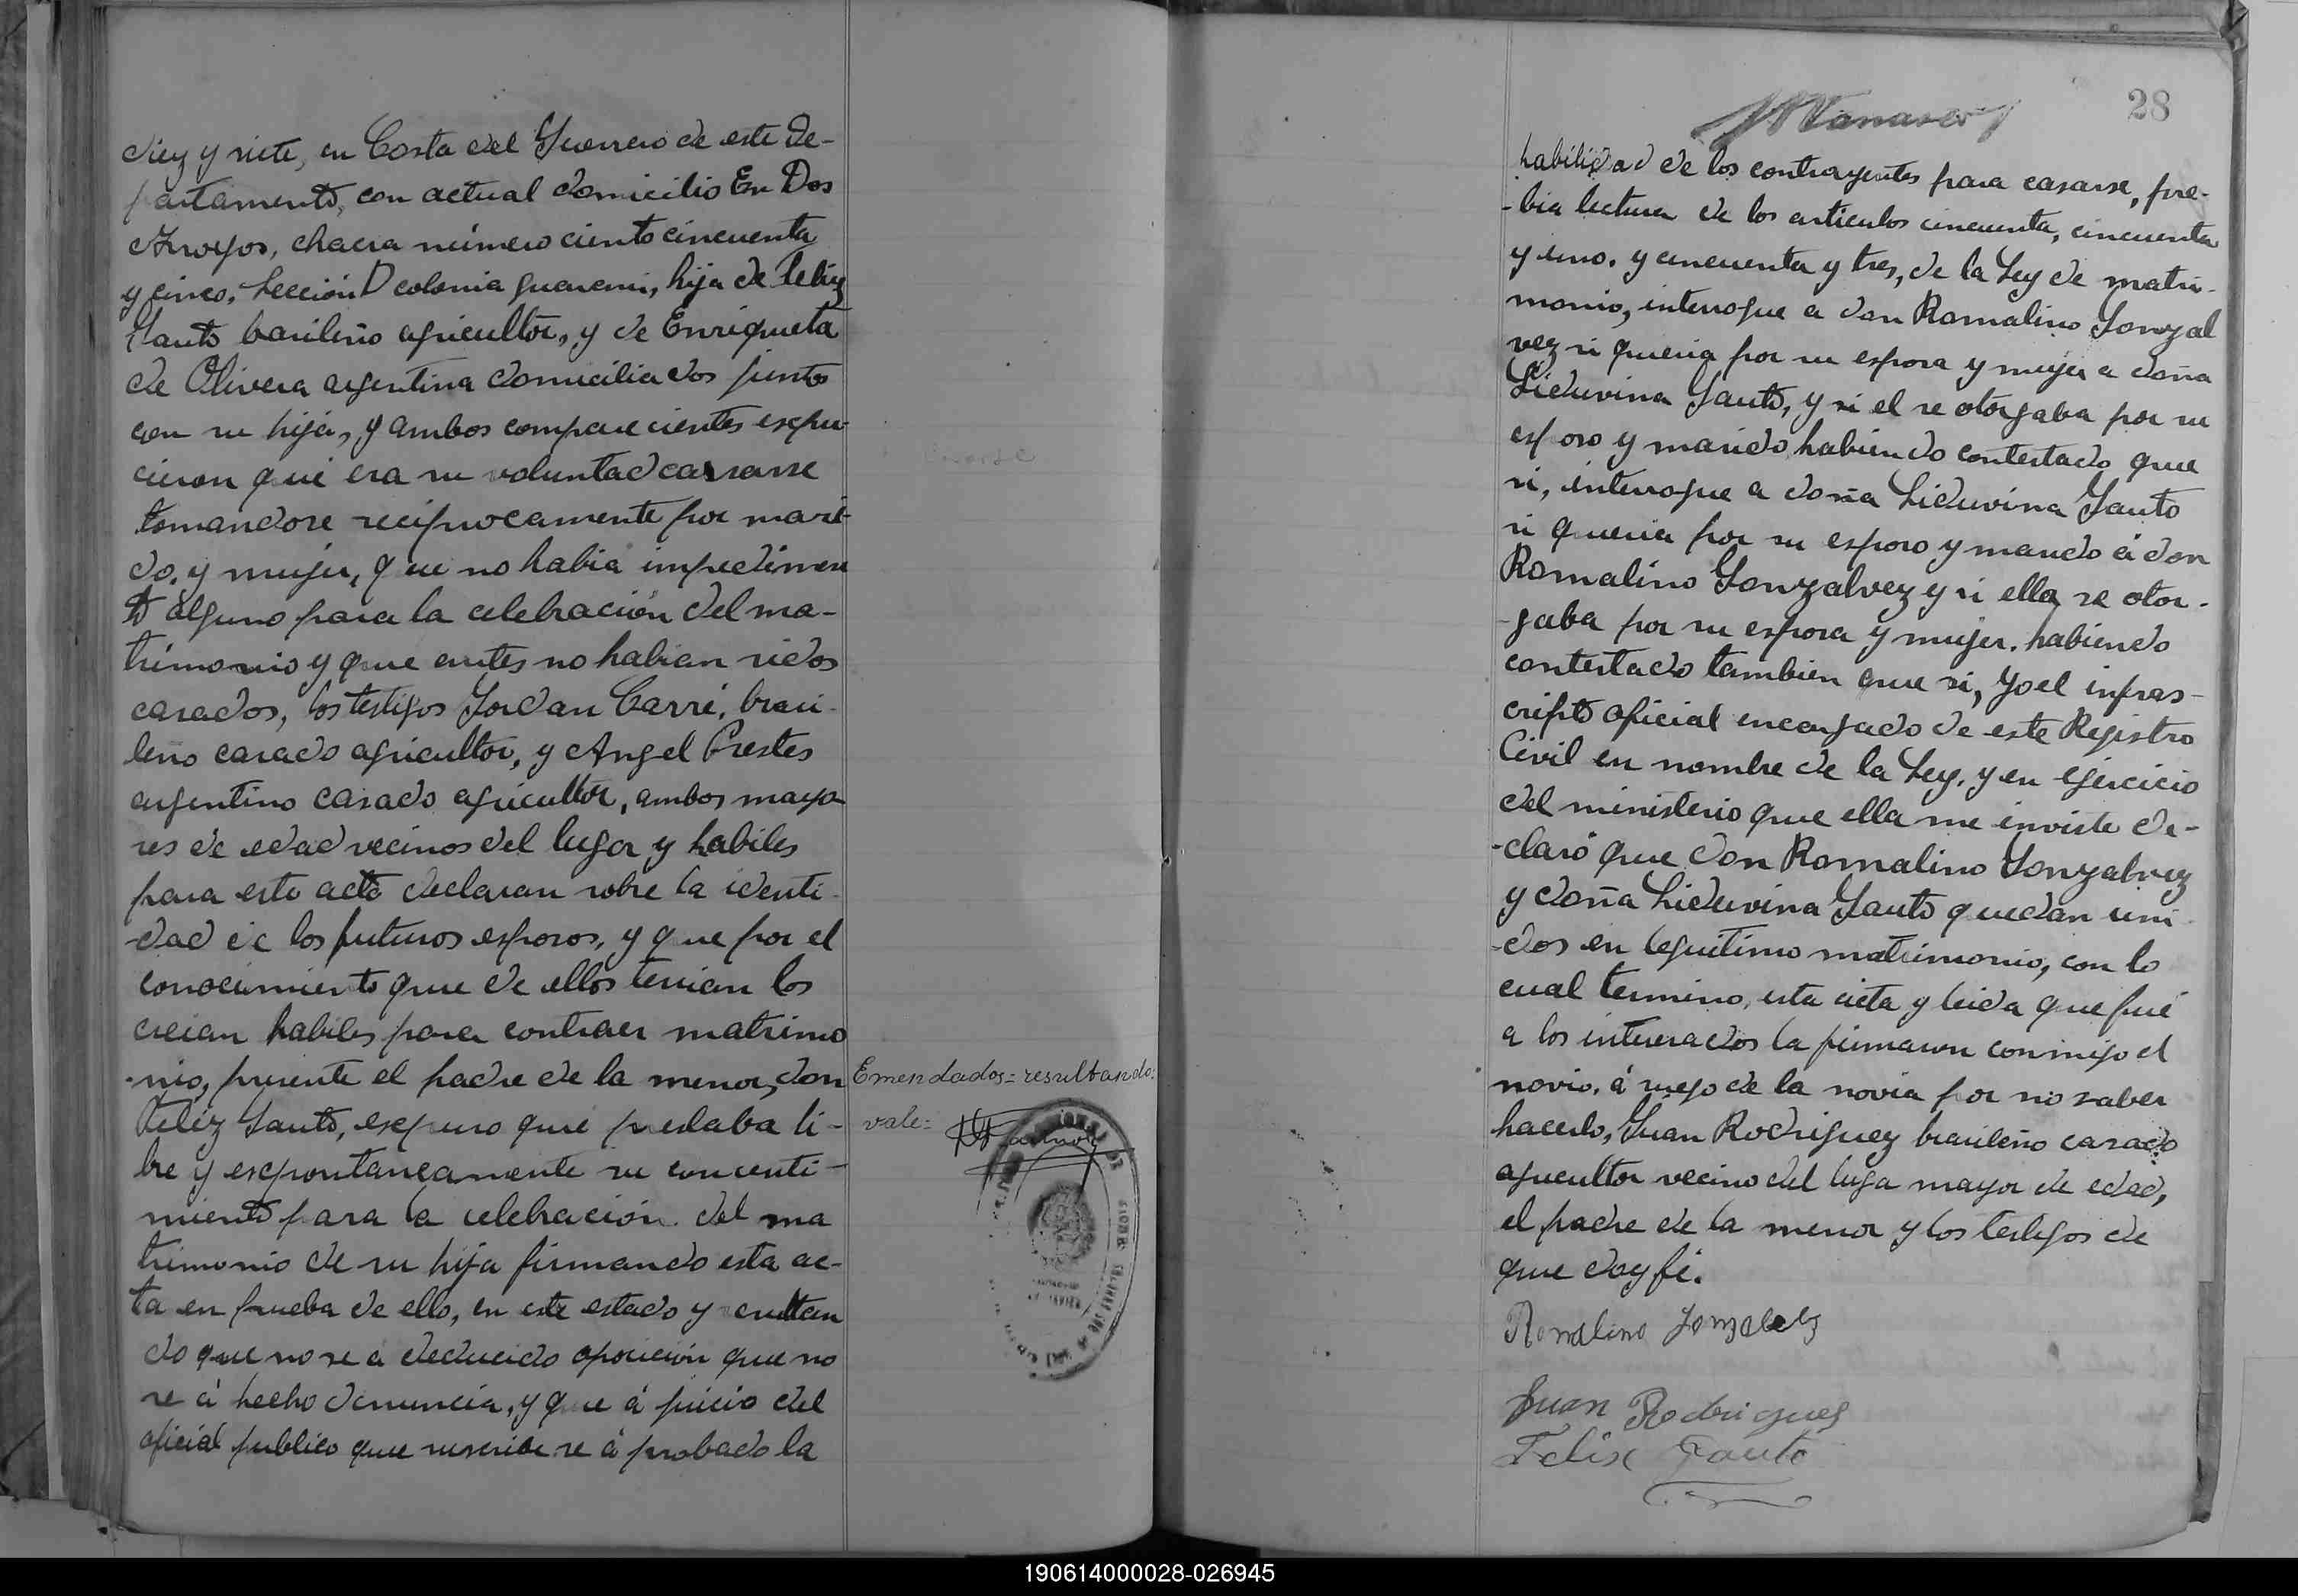 diez y siete, en Costa del Guerrero de este De-
partamento, con actual domicilio En Dos
Arroyos, chacra número ciento cincuenta
y cinco, Sección D colonia guarani, hija de Feliz
Santo brasileño agricultor, y de Enriqueta
de Olivera argentina domiciliados juntos
con su hija, y ambos comparecientes expu
cieron que era su voluntad casarse
tomandose reciprocamente por mari-
do, y mujer, que no habia impedimen
to alguno para la celebración del ma-
trimonio y que antes no habian sidos
casados, los testigos Jordan Carré, brasi-
leño casado agricultor, y Angel Prestes
argentino casado agricultor, ambos mayo
res de edad vecinos del lugar y habiles
para este acto declaran sobre la identi-
dad de los futuros esposos, y que por el
conocimiento que de ellos tenian los
creian habiles para contraer matrimo
-nio, presente el padre de la menor, don
Feliz Santo, expuso que prestaba li-
bre y expontaneamente su concenti-
miento para la celebración del ma
trimonio de su hija firmando esta ac-
ta en prueba de ello, en este estado y resultan
do que no se a deducido oposición que no
se á hecho denuncia, y que á juicio del
oficial publico que suscribe se á probado la
Emendados=resultando:
vale:
28
habilidad de los contrayentes para casarse, pre-
-bia lectura de los articulos cincuenta, cincuenta
y uno. y cincuenta y tres, de la Ley de matri-
monio, interrogue a don Romalino Gonzal
vez si queria por su esposa y mujer a doña
Liduvina Santo, y si el se otorgaba por su
esposo y marido habiendo contestado que
si, interrogue a doña Liduvina Santo
si queria por su esposo y marido á don
Romalino Gonzalvez y si ella se otor-
-gaba por su esposa y mujer. habiendo
contestado tambien que si, Yo el infras-
cripto oficial encargado de este Registro
Civil en nombre de la Ley, y en ejercicio
del ministerio que ella me inviste de-
-claró que don Romalino Gonzalvez
y doña Liduvina Santo quedan uni
-dos en leguitimo matrimonio, con lo
cual termino, esta acta y leida que fué
a los interesados la firmaron conmigo el
novio. á ruego de la novia por no saber
hacerlo, Juan Rodriguez brasileño casado
agricultor vecino del luga mayor de edad,
el padre de la menor y los testigos de
que doy fé.
Romalino Gonzalvez
Juan Rodrigues
Felix Santo
190614000028-026945